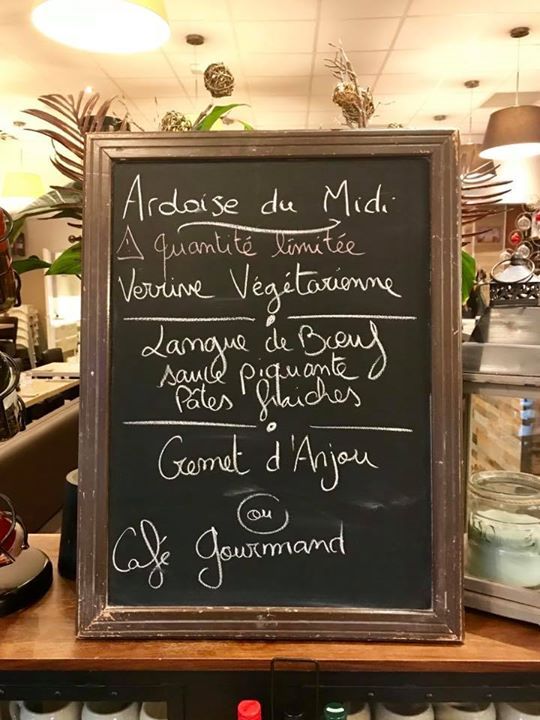 Ardoise du Midi
⚠ quantité limitée
Verrine Végétarienne
Langue de Bœuf
sauce piquante
Pâtes fraîches
Cremet d'Anjou
ou
Café gourmand